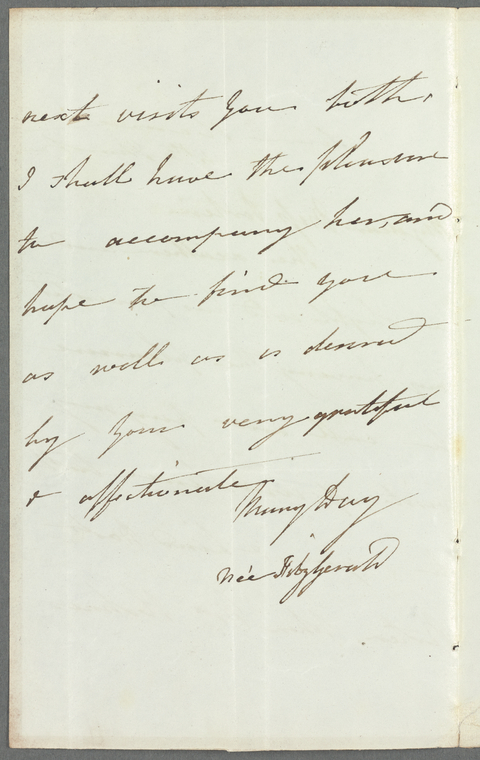 next visits you both,
I shall have the pleasure
to accompany her, and
hope to find you
as well as is desired
by your very grateful
& affectionate
Mary Day
née FitzGerald